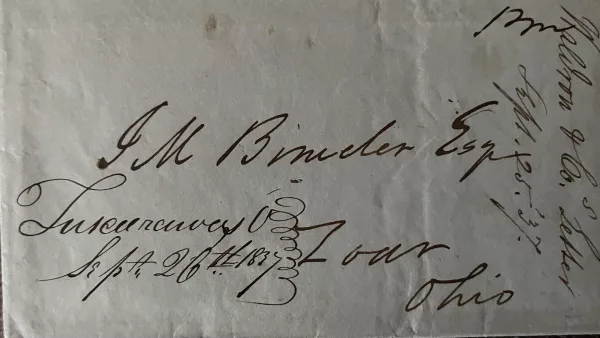 J M Bimeler Esq
Zoar
Ohio
Tuscarawas O
Sept. 26th 1837
& Cos Letter
Sept. 25. '37.